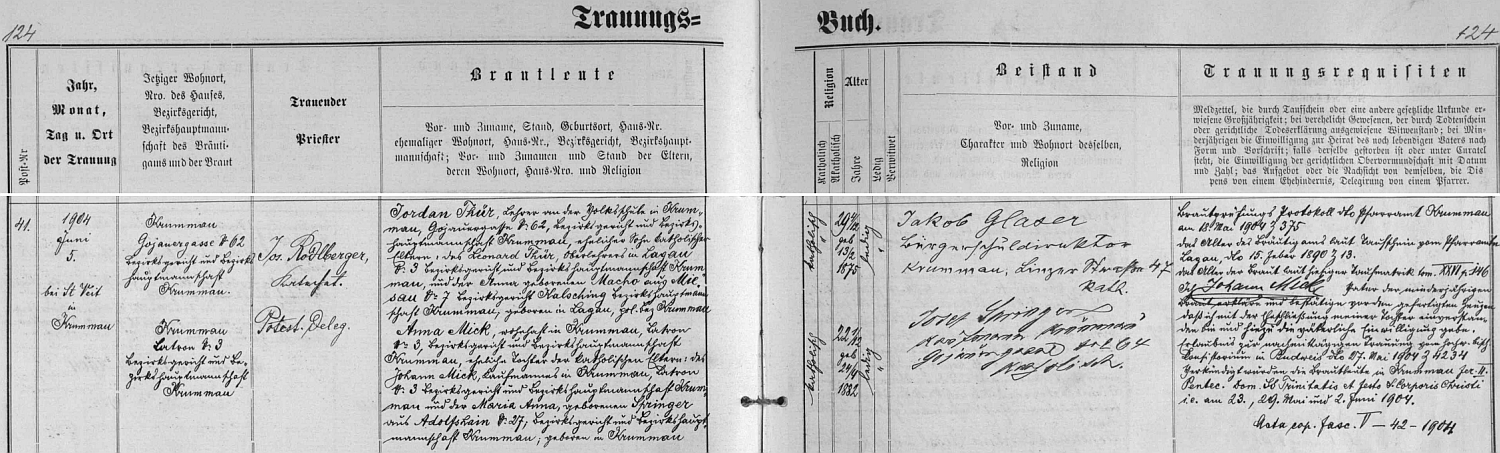 124
Trauungs=
Buch.
124
Post-Nr
Jahr,
Monat,
Tag u. Ort
der Trauung
Jetziger Wohnort,
Nro. des Hauses,
Bezirksgericht,
Bezirkshauptmann-
schaft des Bräuti-
gams und der Braut
Trauender
Priester
Brautleute
Vor- und Zuname, Stand, Geburtsort, Haus-Nr.
ehemaliger Wohnort, Haus-Nr., Bezirksgericht, Bezirkshaupt-
mannschaft; Vor- und Zunamen und Stand der Eltern,
deren Wohnort, Haus-Nro. und Religion
Religion
Katholisch
Akatholisch
Alter
Jahre
Ledig
Verwitwet
Beistand
Vor- und Zuname,
Charakter und Wohnort desselben,
Religion
Trauungsrequisiten
Meldzettel, die durch Taufschein oder eine andere gesetzliche Urkunde er-
wiesene Großjährigkeit; bei verehelicht Gewesenen, der durch Todtenschein
oder gerichtliche Todeserklärung ausgewiesene Witwenstand; bei Min-
derjährigen die Einwilligung zur Heirat des noch lebendigen Vaters nach
Form und Vorschrift; falls derselbe gestorben ist oder unter Curatel
steht, die Einwilligung der gerichtlichen Obervormundschaft mit Datum
und Zahl; das Aufgebot oder die Nachsicht von demselben, die Dis
pens von einem Ehehindernis, Delegirung von einem Pfarrer.
41.
1904
Juni
5.
bei St. Veit
in
Krummau
Krummau
Gojauergasse N: 62
Bezirksgericht und Bezirks
hauptmannschaft
Krummau.
Krummau
Latron N: 3
Bezirksgericht und Be-
zirkshauptmannschaft
Krummau
Jos. Rodlberger,
Katechet.
Potest. Deleg.
Jordan Thür, Lehrer an der Volksschule in Krum-
mau, Gojauergasse N: 62, Bezirksgericht und Bezirks-
hauptmannschaft Krummau, ehelicher Sohn katholischer
Eltern: des Leonard Thür, Oberlehrers in Lagau
N: 3 Bezirksgericht und Bezirkshauptmannschaft Krum-
mau, und der Anna geborenen Macho aus Mil-
sau N: 7 Bezirksgericht Kalsching Bezirkshauptmann
schaft Krummau, geboren in Lagau, pol. bez. Krummau
Anna Mick, wohnhaft in Krummau, Latron
N: 3, Bezirksgericht und Bezirkshauptmannschaft
Krummau, eheliche Tochter der katholischen Eltern: des
Johann Mick, Kaufmannes in Krummau, Latron
N: 3 Bezirksgericht und Bezirkshauptmannschaft Krum-
mau und der Maria Anna, geborenen Springer
aus Adolfshain N: 27, Bezirksgericht und Bezirkshaupt
mannschaft Krummau; geboren in Krummau
katholisch
geb
1875
ledig
katholisch
geb
1882
ledig
Jakob Glaser
Bürgerschuldirektor
Krummau, Linzer Strasse 47
kath.
Josef Springer
Kaufmann Krummau
Gojauergasse N: 64
katholisch.
Brautprüfungs Protokoll dto Pfarramt Krummau
am 18. Mai 1904 Z 375
das Alter des Bräutigams laut Taufschein vom Pfarramte
Lagau, dto 15. Feber 1890 Z 13.
das Alter der Braut laut hiesiger Taufmatrik tom. XXVI p. 146
Ich Johann Mick Vater der minderjährigen
Braut erkläre und bestätige vor den gefertigten Zeugen
daß ich mit der Eheschließung meiner Tochter einverstan-
den bin und hiezu die väterliche Einwilligung gebe.
Erlaubnis zur nachmittägigen Trauung vom hochw. bisch.
Consistorium in Budweis dto 27. Mai 1904 Z 4234
Verkündigt wurden die Brautleute in Krummau fer. II.
Pentec. Dom. SS. Trinitatis et festo S. Corporis Christi
i. e. am 23., 29. Mai und 2. Juni 1904.
Acta cop. fasc. V — 42 — 1904